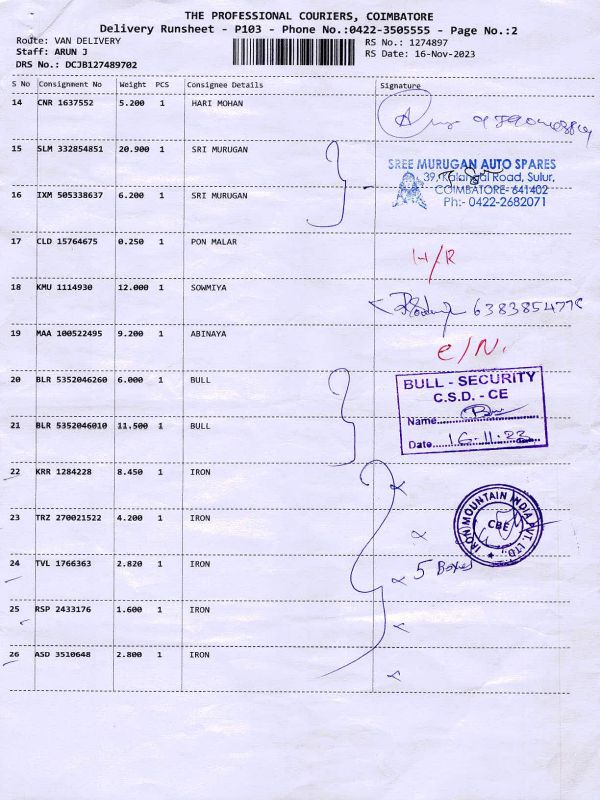 THE PROFESSIONAL COURIERS, COIMBATORE
Delivery Runsheet - P103 - Phone No.:0422-3505555 - Page No.:2
Route: VAN DELIVERY RS No.: 1274897
Staff: ARUN J RS Date: 16-Nov-2023
DRS No.: DCJB127489702
S No Consignment No Weight PCS Consignee Details Signature
14 CNR 1637552 5.200 1 HARI MOHAN
15 SLM 332854851 20.900 1 SRI MURUGAN
SREE MURUGAN AUTO SPARES
39, Kalangal Road, Sulur,
COIMBATORE- 641402
Ph:- 0422-2682071
16 IXM 505338637 6.200 1 SRI MURUGAN
17 CLD 15764675 0.250 1 PON MALAR
H/R
18 KMU 1114930 12.000 1 SOWMIYA
6383854778
19 MAA 100522495 9.200 1 ABINAYA
e/N.
20 BLR 5352046260 6.000 1 BULL
BULL - SECURITY
C.S.D. - CE
Name
Date 16-11-23
21 BLR 5352046010 11.500 1 BULL
22 KRR 1284228 8.450 1 IRON
23 TRZ 270021522 4.200 1 IRON
IRON MOUNTAIN INDIA PVT. LTD.,
CBE
24 TVL 1766363 2.820 1 IRON
5 Boxes
25 RSP 2433176 1.600 1 IRON
26 ASD 3510648 2.800 1 IRON